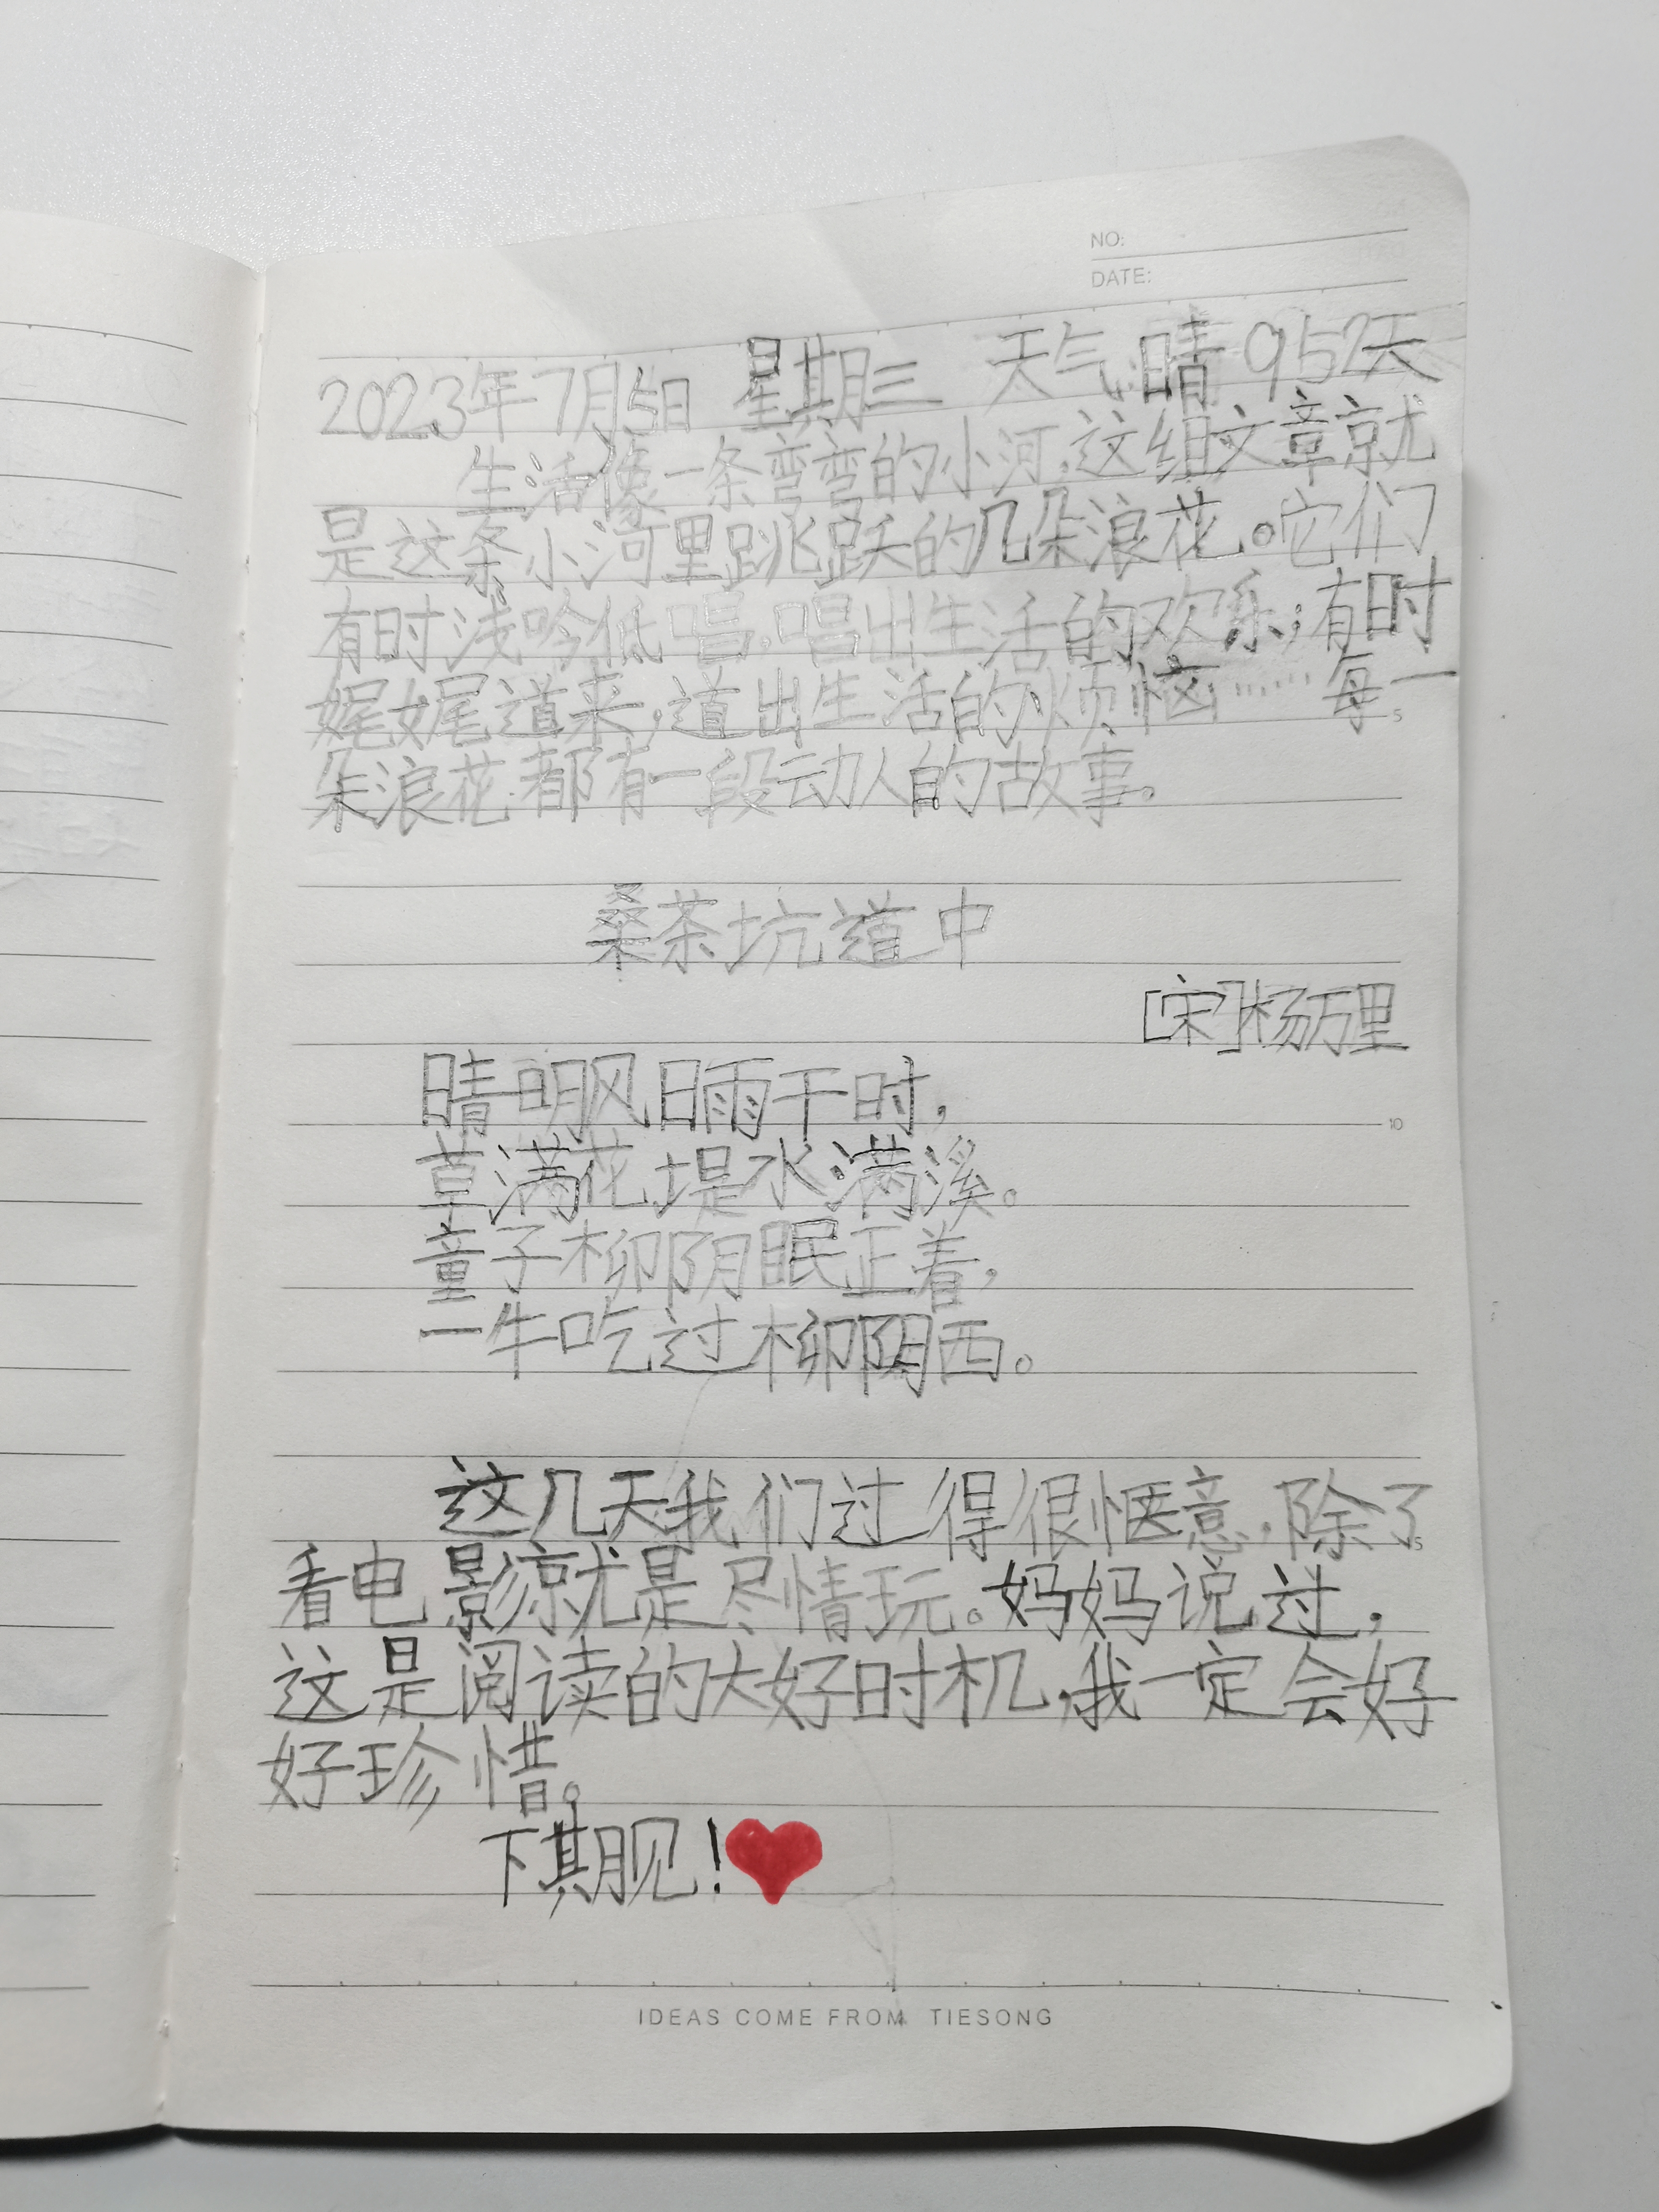 NO:
DATE:
2023年7月5日 星期三 天气:晴 952天
生活像一条弯弯的小河,这组文章就
是这条小河里跳跃的几朵浪花。它们
有时浅吟低唱,唱出生活的欢乐;有时
娓娓道来,道出生活的烦恼……每一
5
朵浪花都有一段动人的故事。
桑茶坑道中
[宋]杨万里
晴明风日雨干时,
10
草满花堤水满溪。
童子柳阴眠正着,
一牛吃过柳阴西。
这几天我们过得很惬意,除了
看电影就是尽情玩。妈妈说过,
这是阅读的大好时机,我一定会好
好珍惜。
下期见!
IDEAS COME FROM TIESONG